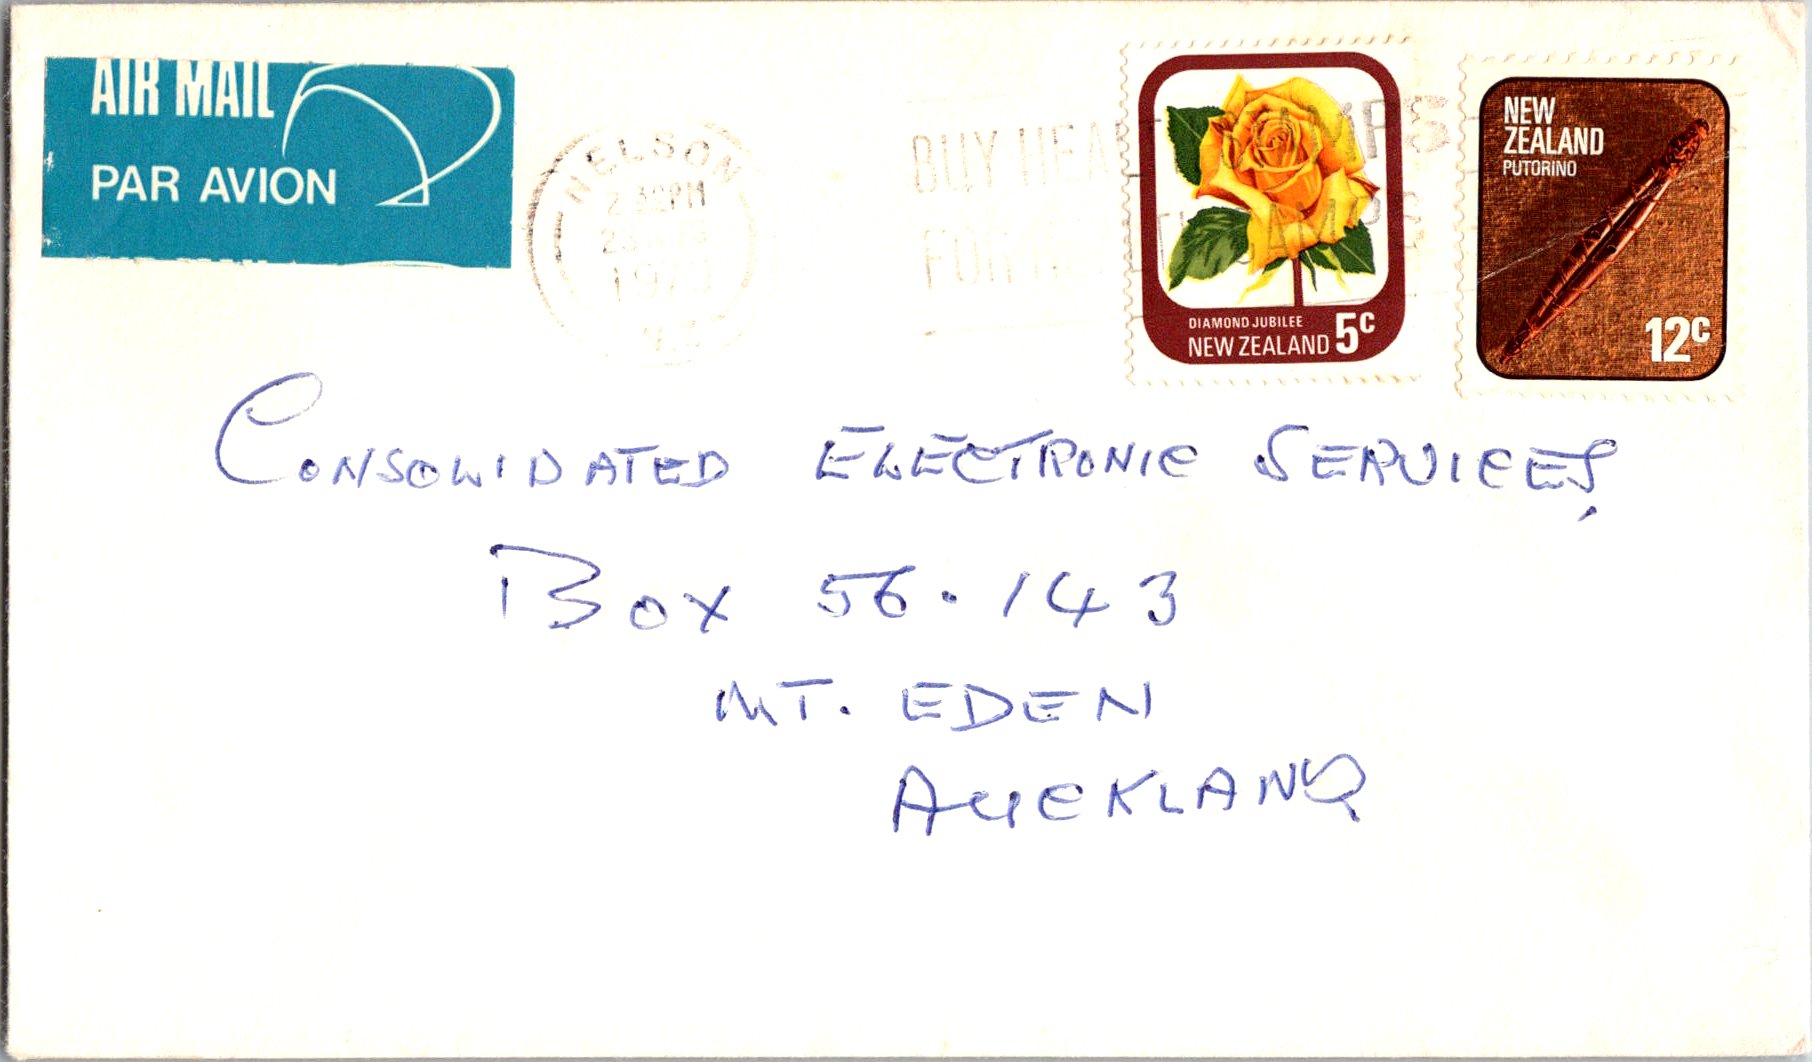 AIR MAIL
PAR AVION
NELSON
2 30PM
BUY HEA MPS
FOR
DIAMOND JUBILEE
NEW ZEALAND 5c
NEW
ZEALAND
PUTORINO
12c
CONSOLIDATED ELECTRONIC SERVICES,
BOX 56.143
MT. EDEN
AUCKLAND